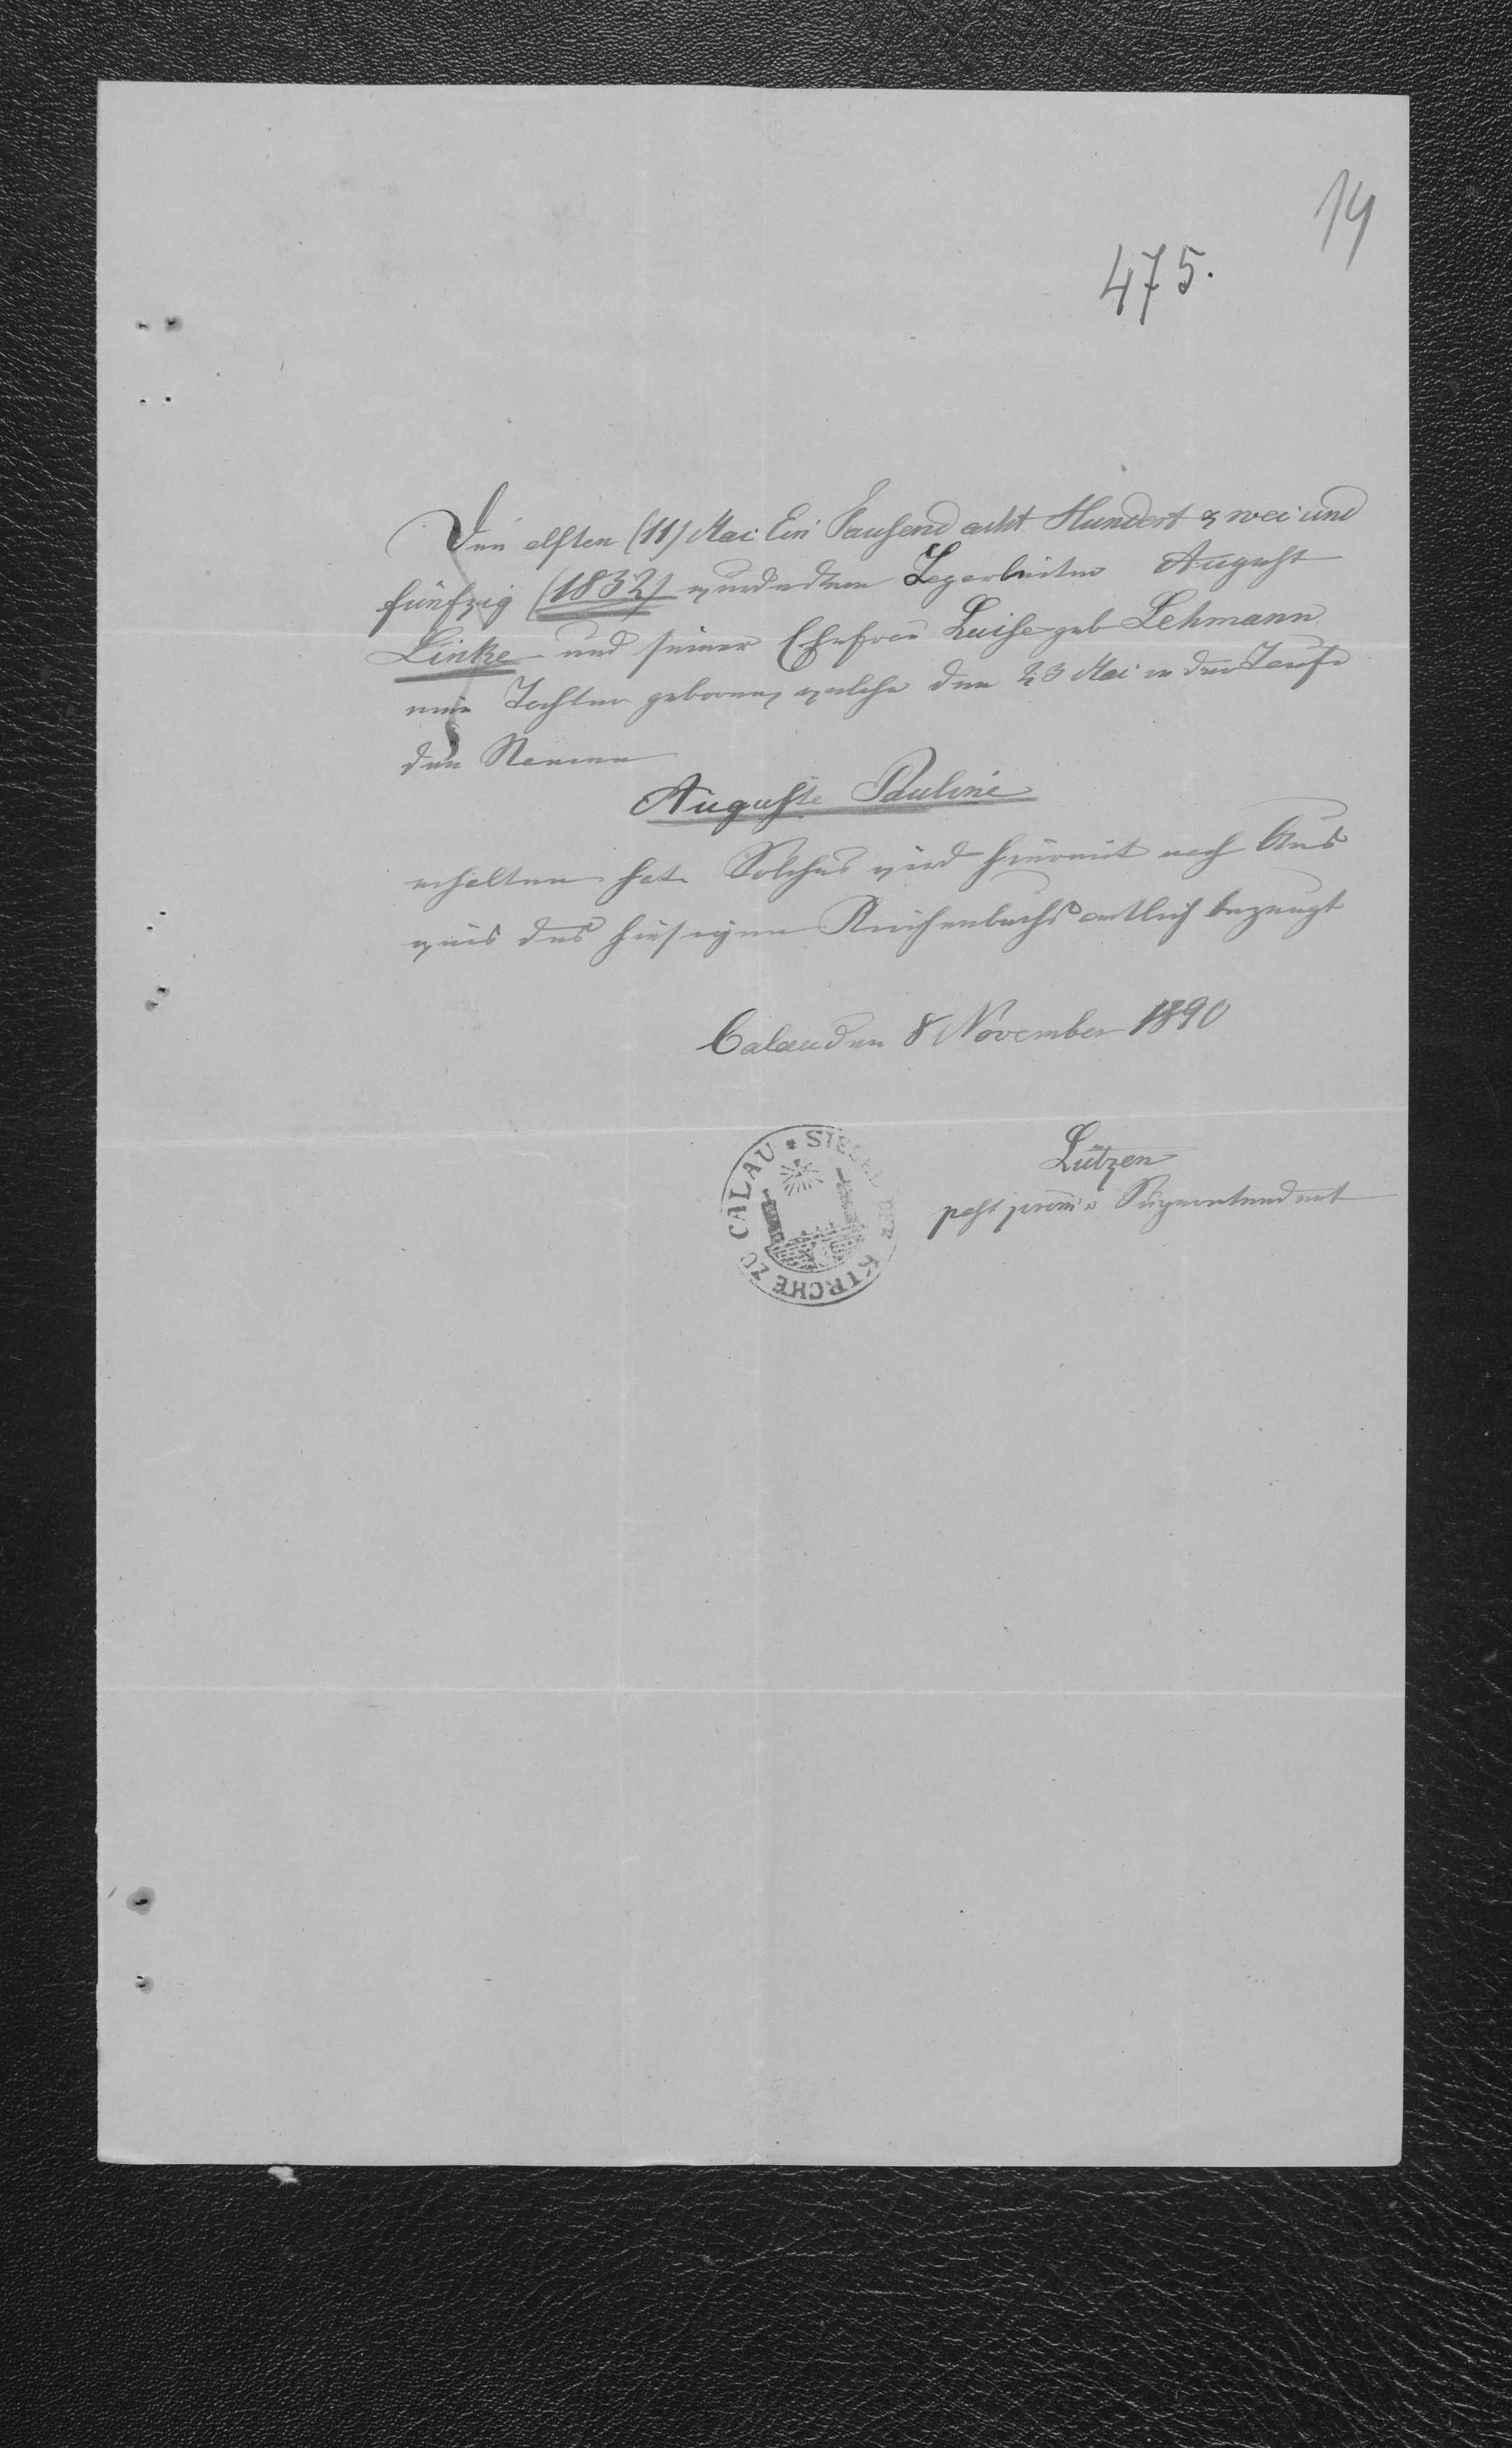 14
475.
Den elften (11) Mai Ein Tausend acht Hundert zwei und
fünfzig (1852) wurde dem August
Linke und seiner Ehefrau Luise geb Lehmann
eine Tochter geboren, welche den 23 Mai in der Taufe
den Namen
Auguste Pauline
erhalten hat. Solches wird hiermit nach Aus
weis des hiesigen Kirchenbuchs amtlich bezeugt
Calau den 8 November 1890
SIEGEL DER KIRCHE ZU CALAU *
Lützen
Superintendent